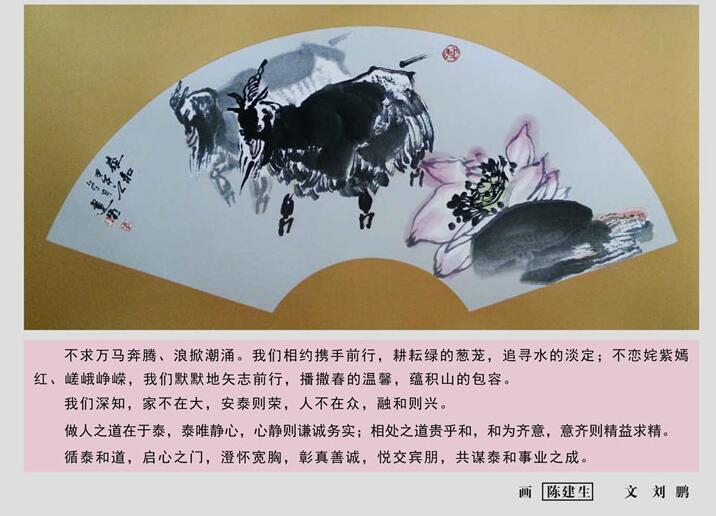 泰和
不求万马奔腾、浪掀潮涌。我们相约携手前行，耕耘绿的葱茏，追寻水的淡定；不恋姹紫嫣
红、嵯峨峥嵘，我们默默地矢志前行，播撒春的温馨，蕴积山的包容。
我们深知，家不在大，安泰则荣，人不在众，融和则兴。
做人之道在于泰，泰唯静心，心静则谦诚务实；相处之道贵乎和，和为齐意，意齐则精益求精。
循泰和道，启心之门，澄怀宽胸，彰真善诚，悦交宾朋，共谋泰和事业之成。
画 陈建生 文 刘 鹏